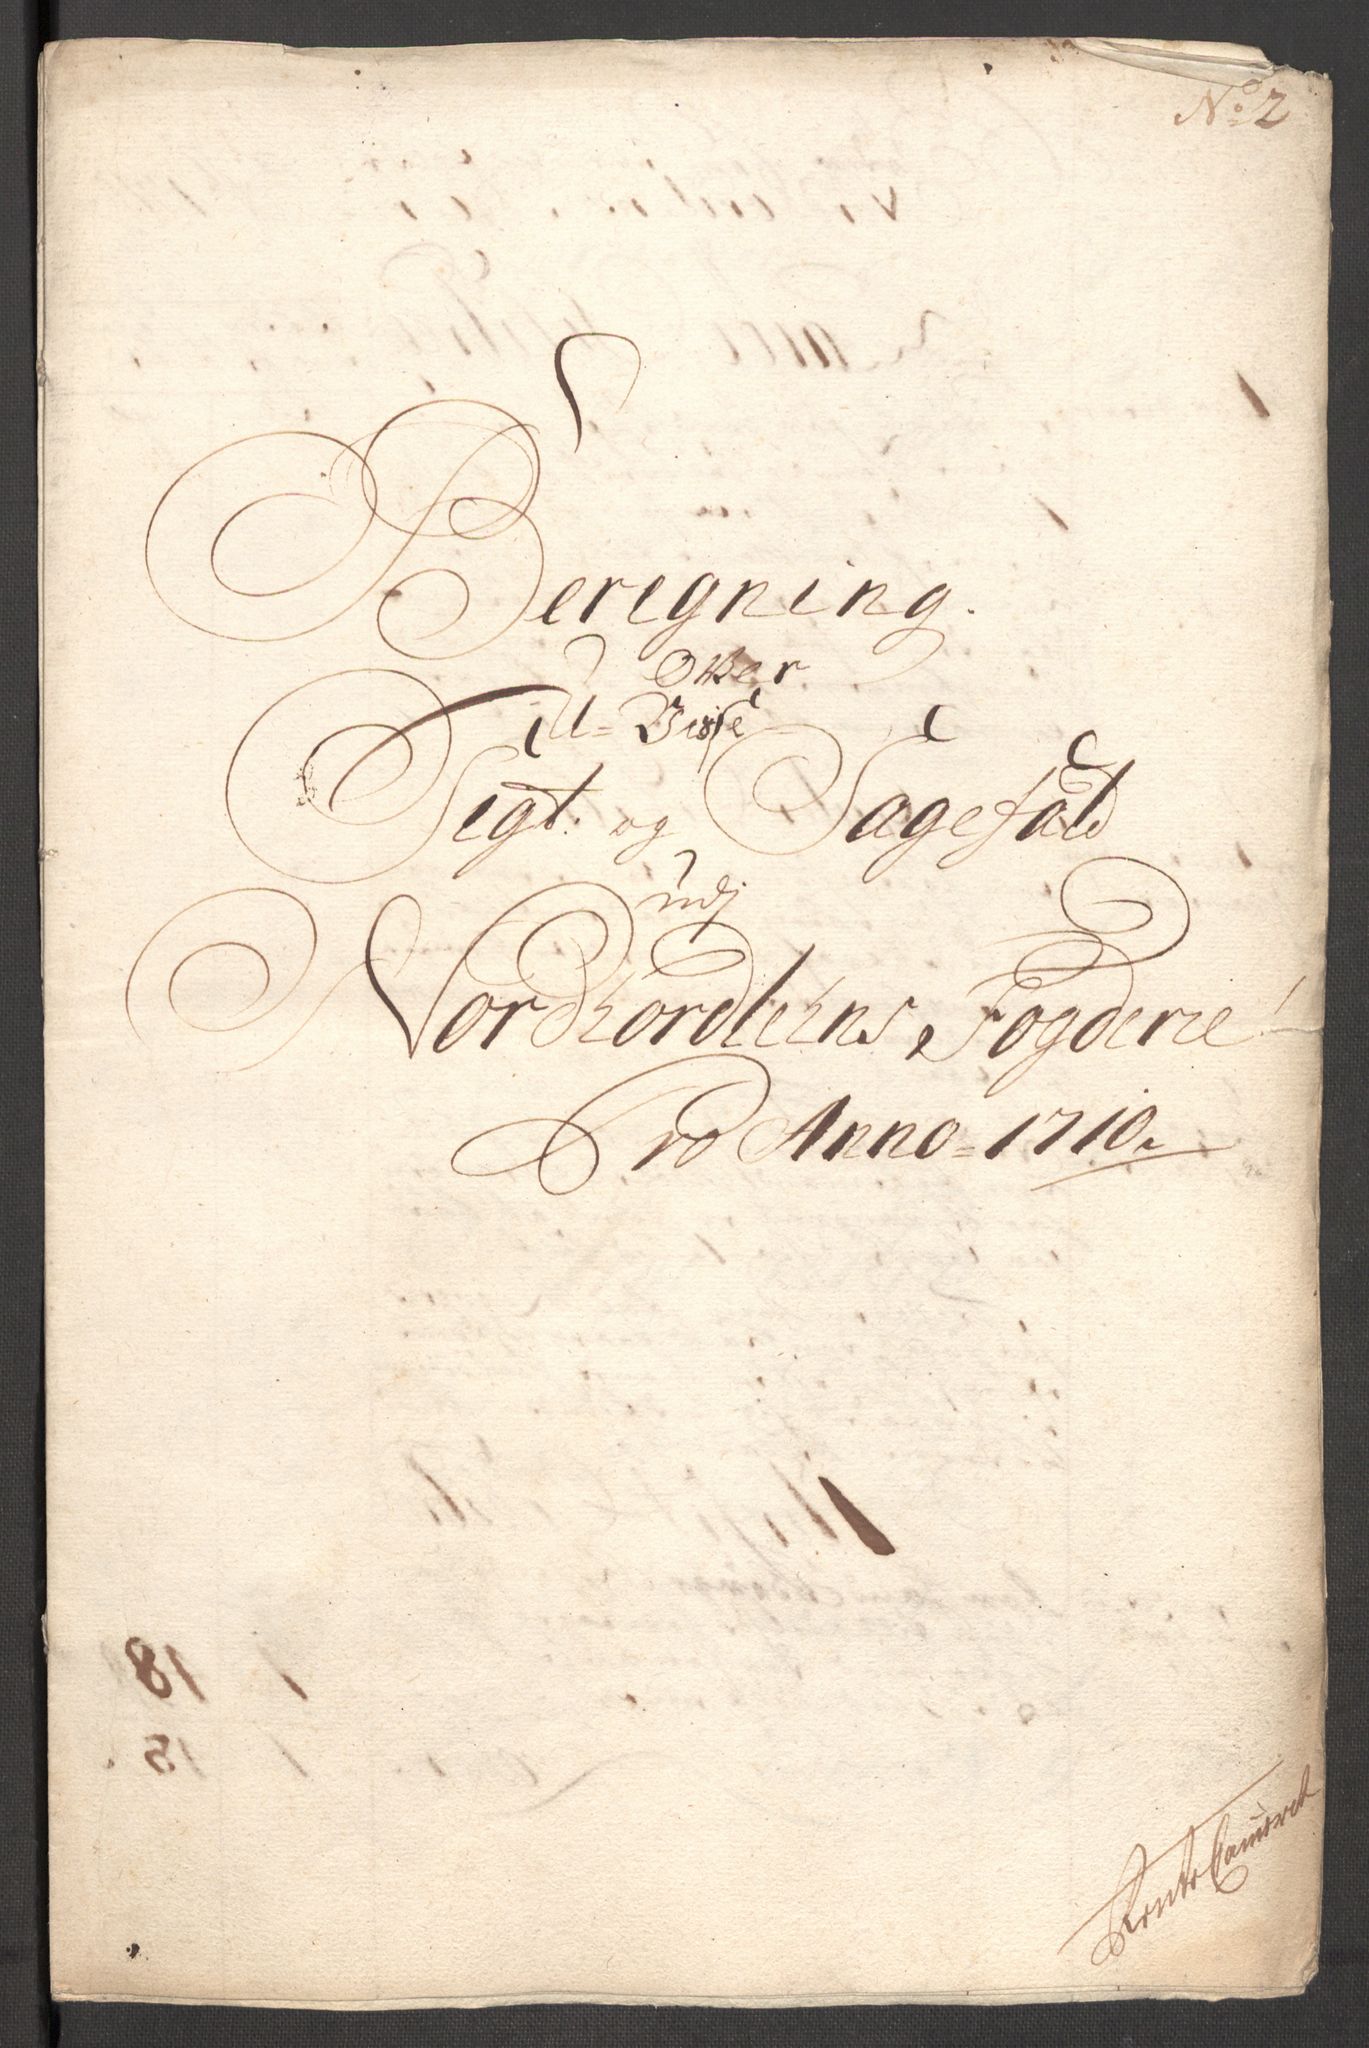 No: 2
Beregning.
Ofver
U=Visse
Sigt. og Sagefald
udj
Nordhordlehns Fogderie
Pro Anno=1710.
Rente Cammeret
18
15